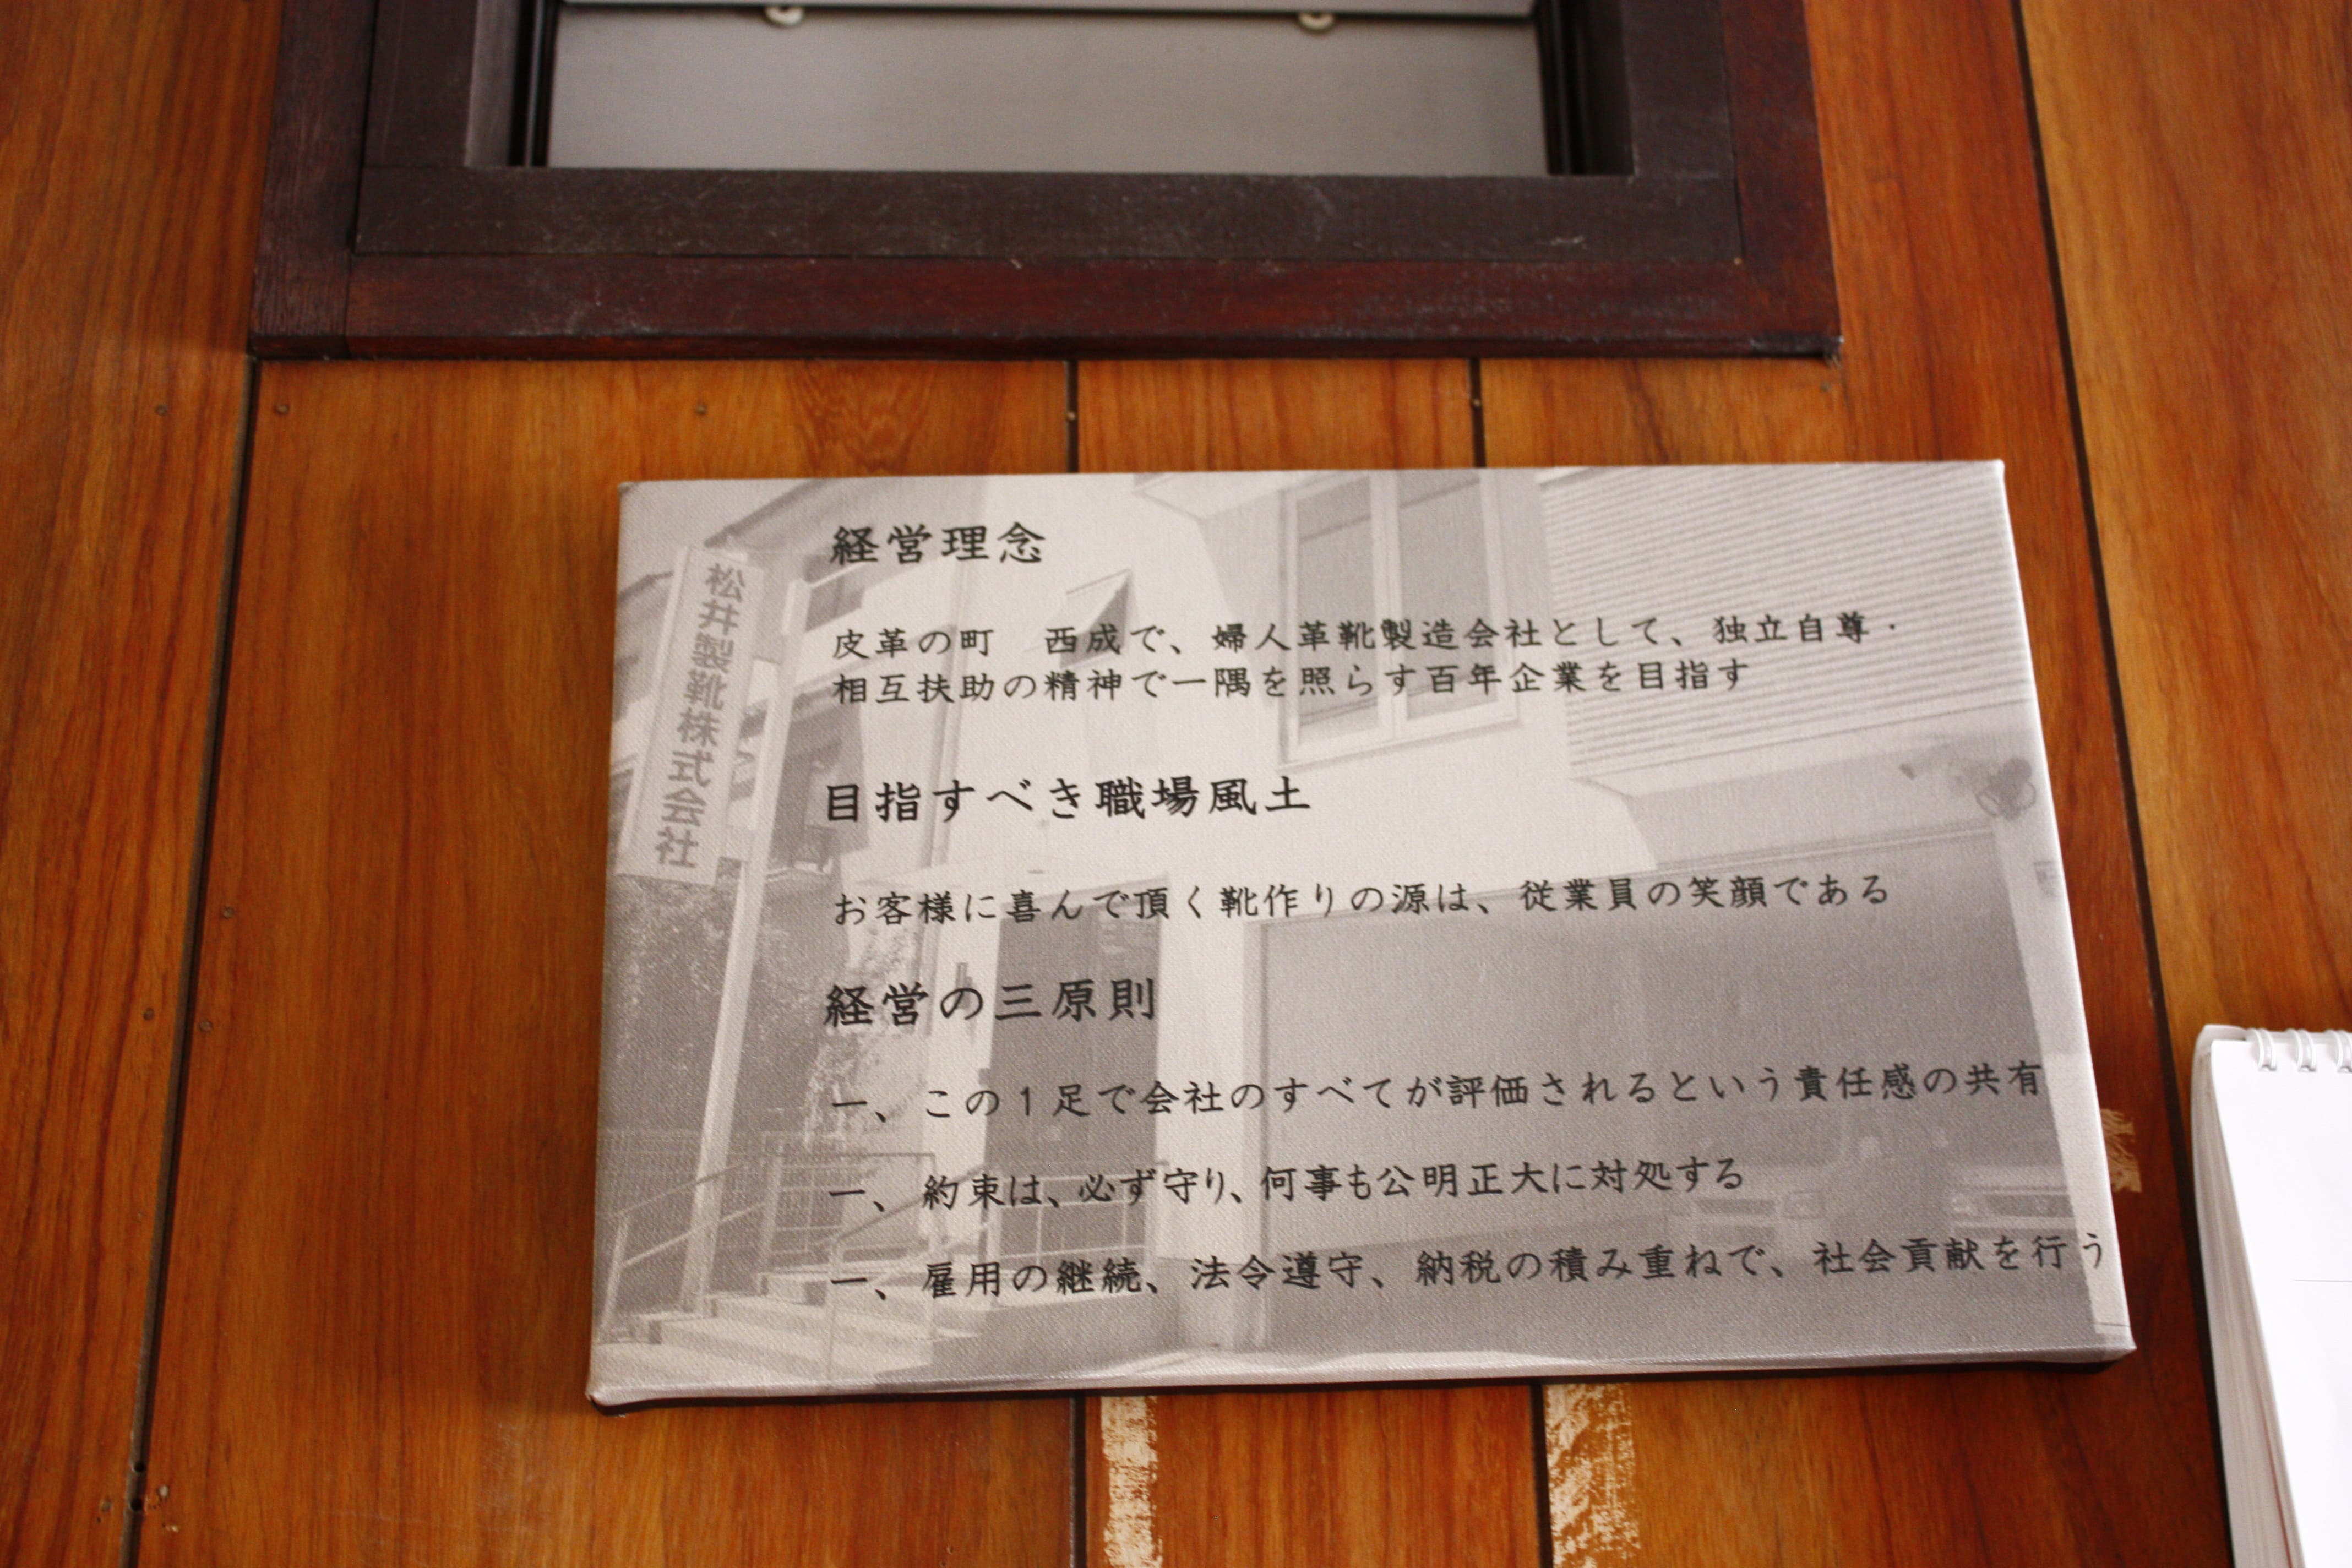 松井製靴株式会社
経営理念
皮革の町　西成で、婦人革靴製造会社として、独立自尊・
相互扶助の精神で一隅を照らす百年企業を目指す
目指すべき職場風土
お客様に喜んで頂く靴作りの源は、従業員の笑顔である
経営の三原則
一、この1足で会社のすべてが評価されるという責任感の共有
一、約束は、必ず守り、何事も公明正大に対処する
一、雇用の継続、法令遵守、納税の積み重ねで、社会貢献を行う